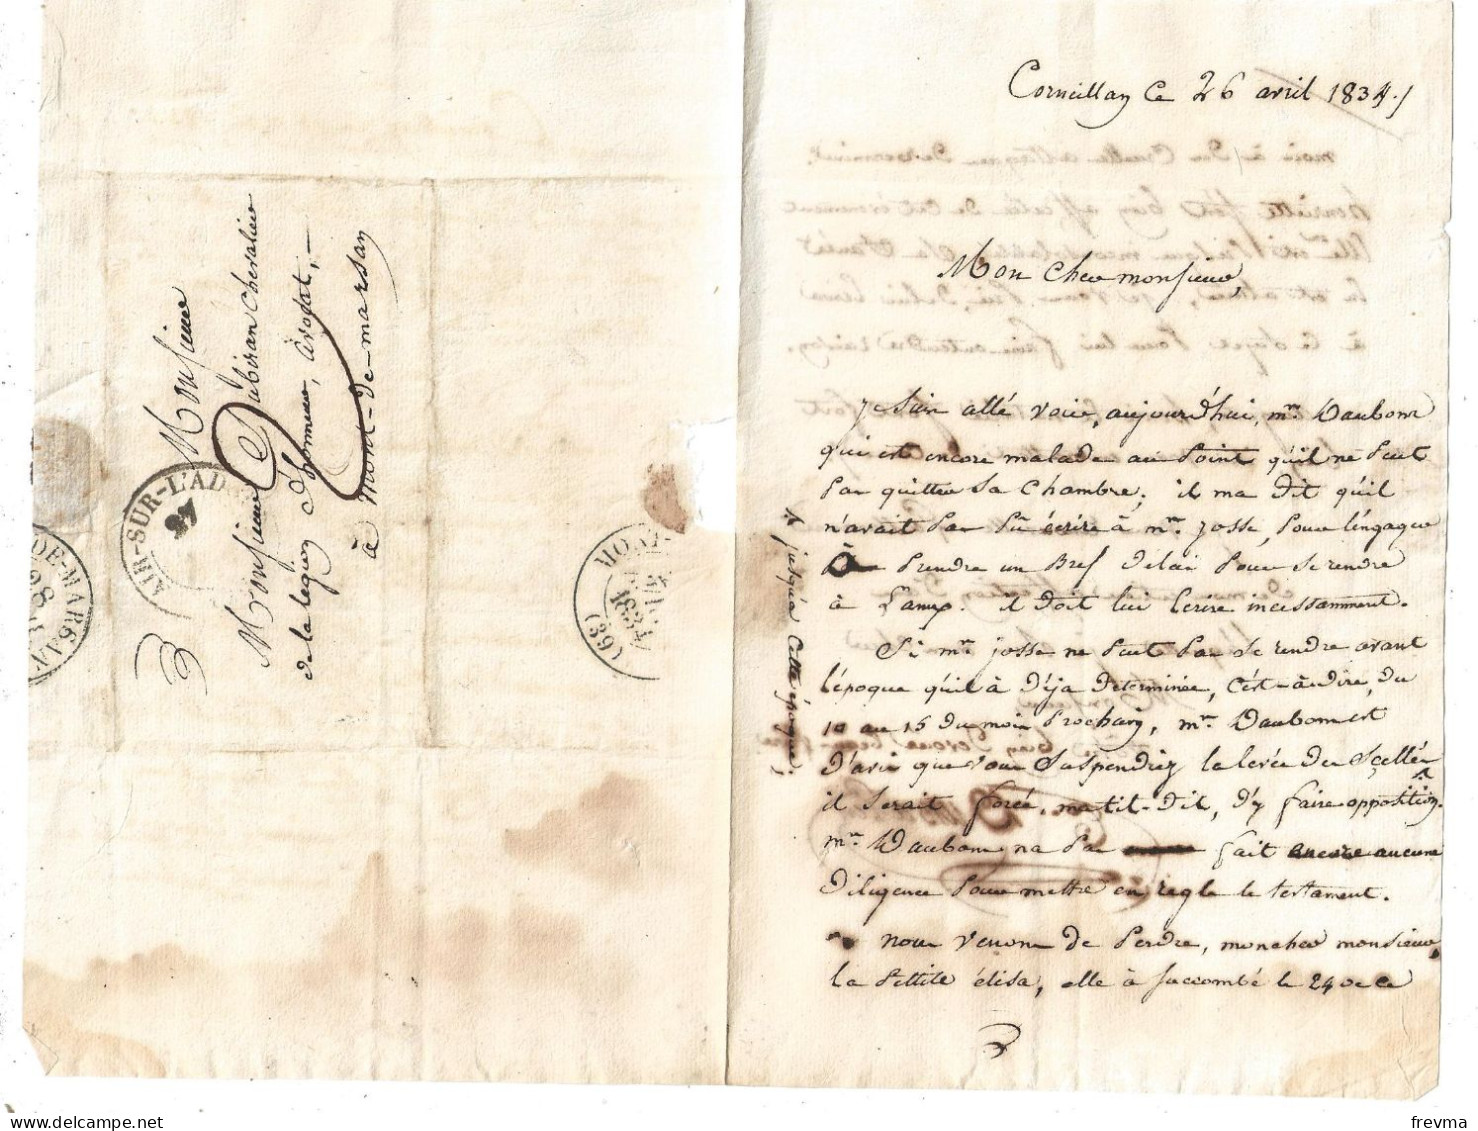 Monsieur
Monsieur Dubiran Chevalier
de la legion d'honneur, avocat,
à mont-de-marsan
AIR-SUR-L'AD
27
DE-MARSAN
28
MONT
1834
(39)
Corneillan Ce 26 avril 1834
Mon Cher monsieur,
je suis allé voir, aujourd'hui, mr. Daubons
qui est encore malade au point qu'il ne peut
pas quitter sa chambre; il m'a dit qu'il
n'avait pas pû écrire à mr. josse, pour l'engager
à prendre un bref délai pour se rendre
à Lanux. il doit lui écrire incessamment.
Si mr. josse ne peut pas se rendre avant
l'époque qu'il à déja déterminée, c'est-à-dire, du
10 au 15 du mois prochain, mr. Daubons est
d'avis que vous suspendriez la levée des scellés
* jusqu'à cette époque;
il serait forcé, m'a-t-il-dit, d'y faire opposition.
mr. Daubons n'a pas fait encore aucune
diligence pour mettre en regle le testament.
nous venons de perdre, mon cher monsieur,
la petite élisa, elle à succombé le 24 de ce
frevma